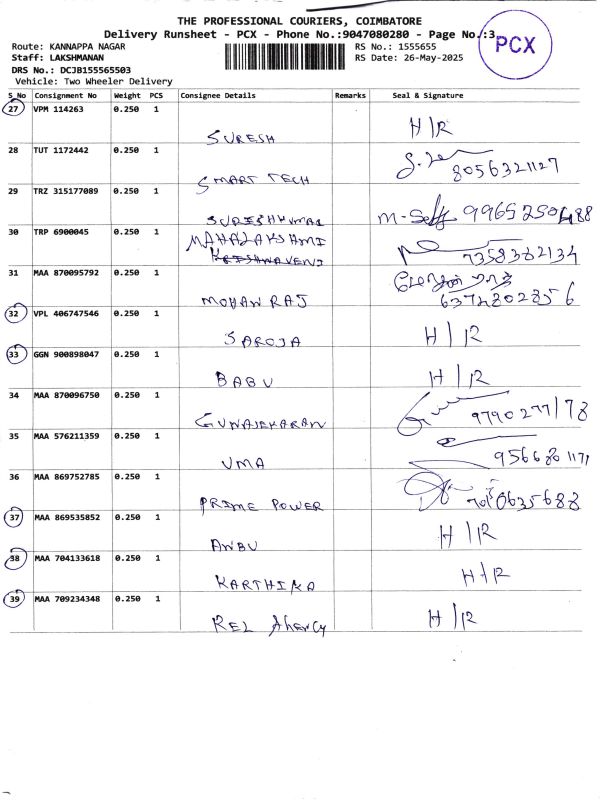 THE PROFESSIONAL COURIERS, COIMBATORE
Delivery Runsheet - PCX - Phone No.:9047080280 - Page No.:3
PCX
Route: KANNAPPA NAGAR
RS No.: 1555655
Staff: LAKSHMANAN
RS Date: 26-May-2025
DRS No.: DCJB155565503
Vehicle: Two Wheeler Delivery
S_No Consignment No Weight PCS Consignee Details Remarks Seal & Signature
27 VPM 114263 0.250 1
SURESH H/R
28 TUT 1172442 0.250 1
SMART TECH 8056321127
29 TRZ 315177089 0.250 1
SURESHKUMAR M-Self 9965250488
30 TRP 6900045 0.250 1
MAHALAKSHMI
KRISHNAVENI 7358382134
31 MAA 870095792 0.250 1
MOHAN RAJ 6374802856
32 VPL 406747546 0.250 1
SAROJA H/R
33 GGN 900898047 0.250 1
BABU H/R
34 MAA 870096750 0.250 1
GUNASEKARAN 9790277178
35 MAA 576211359 0.250 1
UMA 9566801171
36 MAA 869752785 0.250 1
PRIME POWER
37 MAA 869535852 0.250 1
ANBU H/R
38 MAA 704133618 0.250 1
KARTHIKA H/R
39 MAA 709234348 0.250 1
REL Ahency H/R